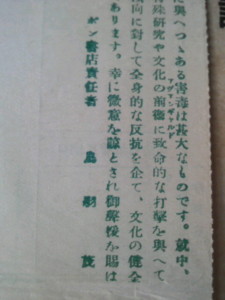 に與へつゝある害毒は甚大なものです。就中、
特殊研究や文化の前衞に致命的な打擊を與へて
アヴァンギャルド
傾向に對して全身的な反抗を企て、文化の健全
あります。幸に微意を諒とされ御鞭撻を賜は
ボン書店責任者 鳥羽 茂